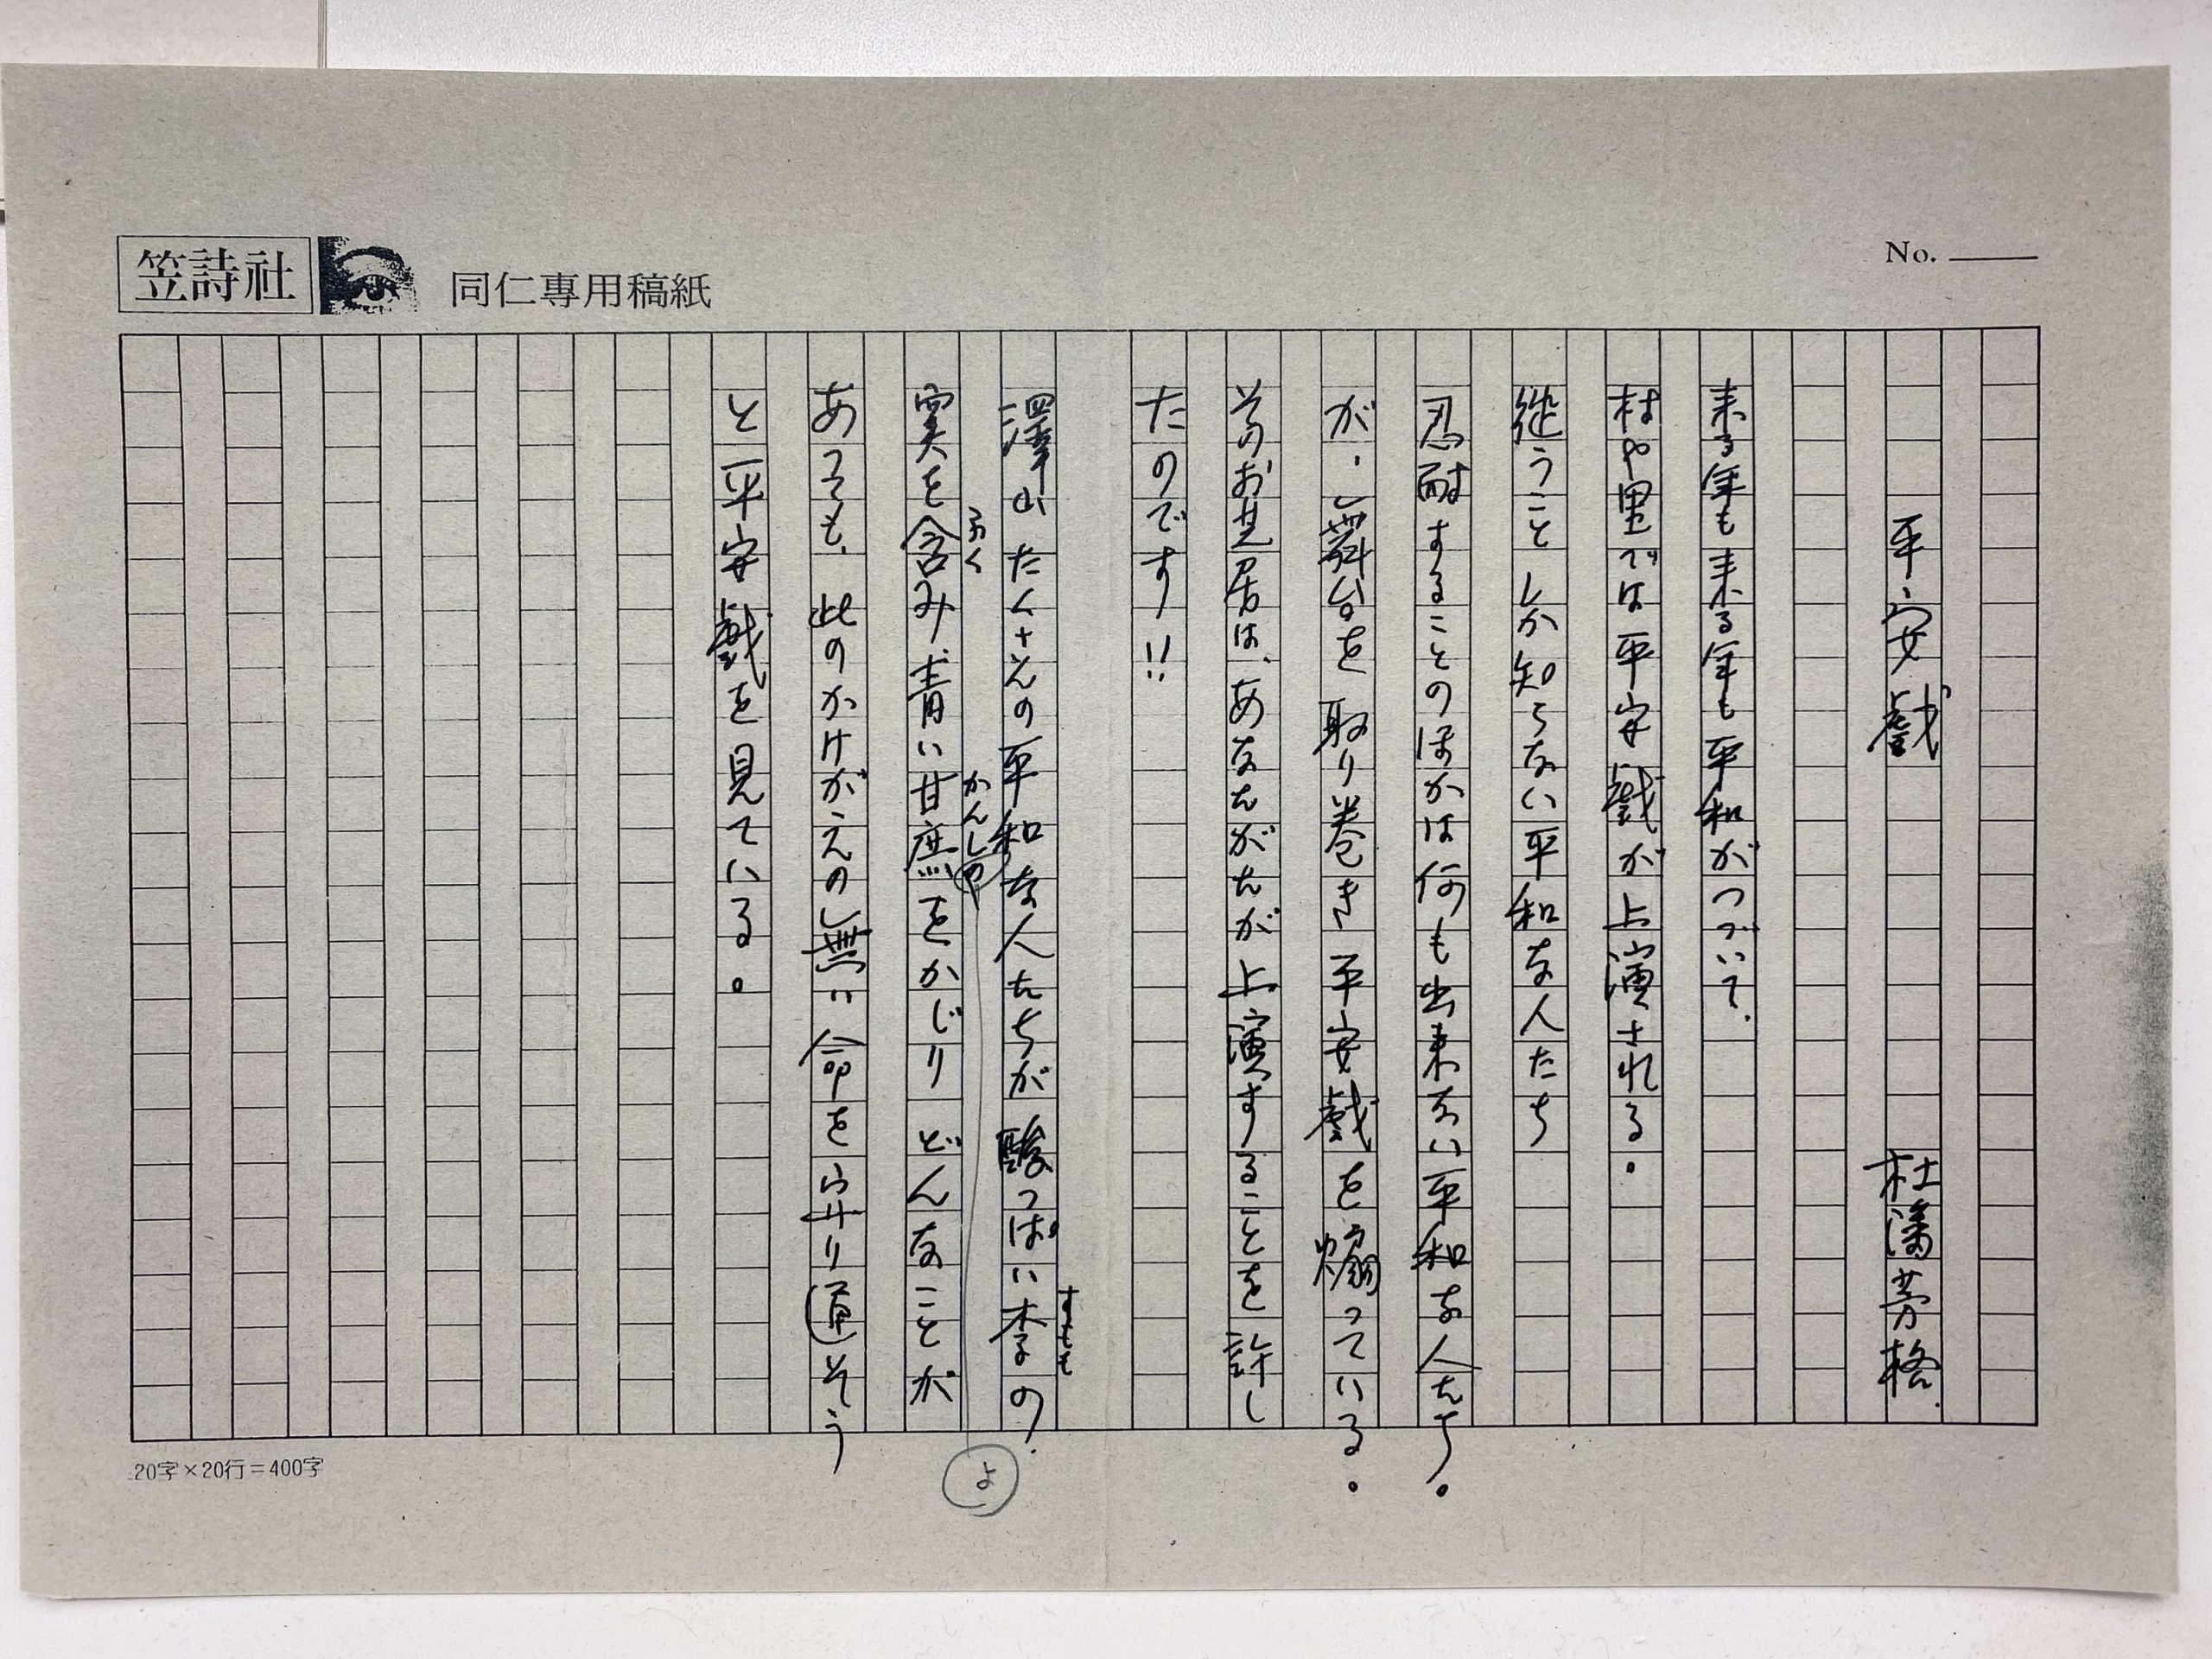 No.
笠詩社
同仁專用稿紙
平安戲　杜潘芳格
来る年も来る年も平和がつづいて、
村や里では平安戲が上演される。
従うことしか知らない平和な人たち
忍耐することのほかは何も出来ない平和な人たち。
が、舞台を取り巻き平安戲を煽っている。
そのお芝居は、あなたがたが上演することを許し
たのです!!
澤山たくさんの平和な人たちが酸っぱい李の、
すもも
実を含み、青い甘蔗をかじりどんなことが
ふく
かんしや
よ
あっても、此のかけがえの無い命を守り通そう
と平安戲を見ている。
20字×20行＝400字